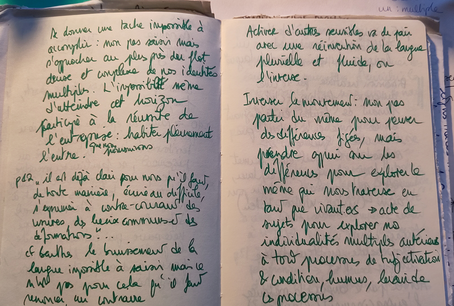 un : multiple
Se donner une tache impossible à
accomplir : non pas saisir mais
s'approcher au plus près du flot
dense et complexe de nos identités
multiples. L'impossibilité même
d'atteindre cet horizon
participe à la réussite de
l'entreprise : habiter pleinement
l'entre.
p62 " il est déjà clair pour nous qu'il faut,
de toute manière, si difficile,
s'exprimer à contre-courant des
usures des lieux communs et des
déformations " ...
cf Barthes, le bruissement de la
langue impossible à saisir mais ce
n'est pas pour cela qu'il faut
au contraire
Activer d'autres sensibles va de pair
avec une réinvention de la langue
plurielle et fluide, ou
l'inverse.
Inverser le mouvement : non pas
partir du même pour penser
des différences figées, mais
prendre appui sur les
différences pour explorer le
même qui nous traverse en
tant que vivant.es → acte de
sujets pour explorer nos
individualités multiples antérieures
à tout processus de subjectivation
& condition, humus,
ce processus